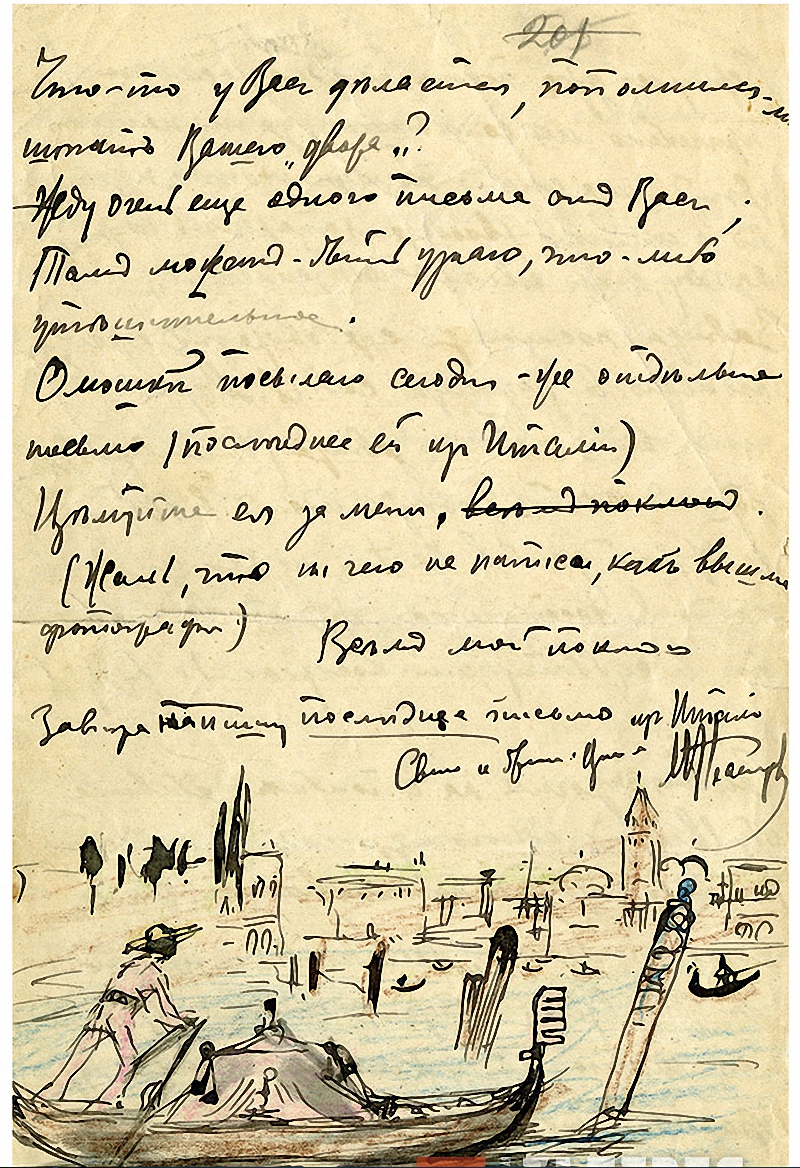 201
Что-то у Васъ дѣлается, пополнился-ли
штатъ Вашего „двора“?
Жду очень еще одного письма отъ Васъ,
Тамъ можетъ-быть узнаю, что-либо
утѣшительное.
посылаю сегодня-же отдѣльное
письмо (последнее ей изъ Италіи)
Цѣлуйте ее за меня, всѣмъ поклонъ.
(Жаль, что ни чего не написали, какъ вышли
фотографіи) Всѣмъ мой поклонъ
Завтра напишу последнее письмо изъ Италіи